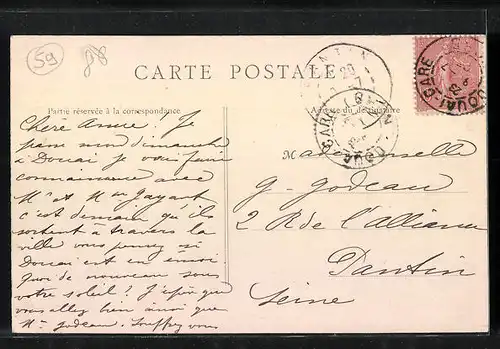 59
CARTE POSTALE
Partie réservée à la correspondance
Adresse du destinataire
DOUAI-GARE
DOUAI-GARE
PANTIN
20
Chere Amie. Je
passe mon dimanche
à Douai je vais faire
connaissance avec
Mr et Mme Gayant
c'est demain qu'ils
sortent à travers la
ville vous pensez si
Douai est en émoi.
Quoi de nouveau sous
votre soleil? J'espère que
vous allez bien ainsi que
Me Godeau. Souffrez vous
Mademoiselle
G. Godeau
2 Rue de l'Alliance
Pantin
Seine